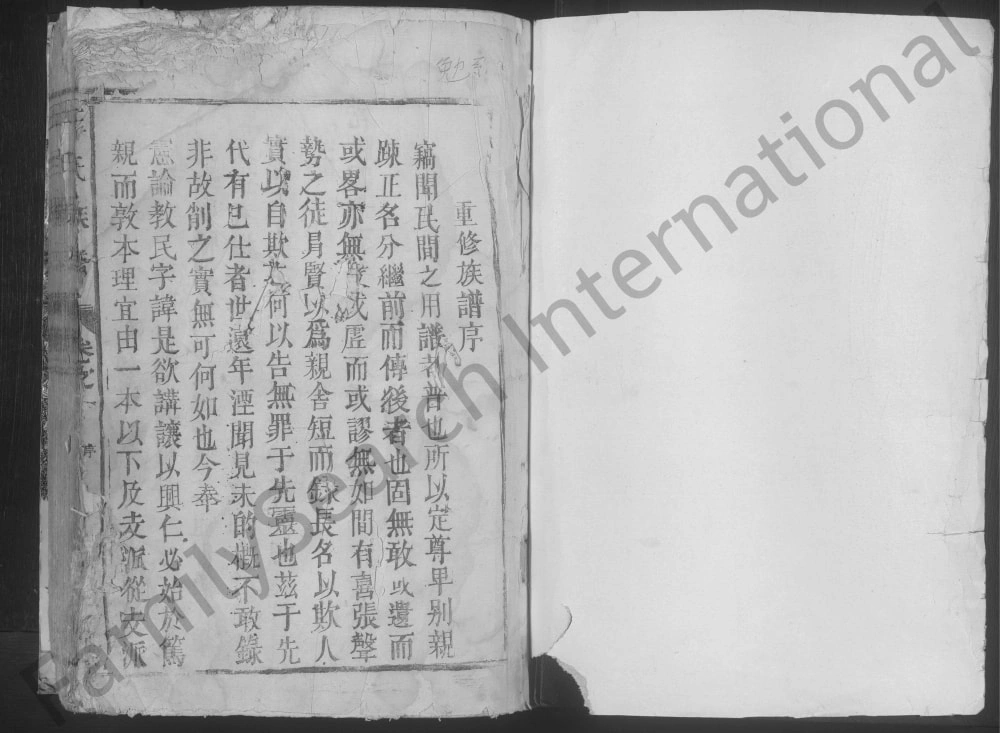 重修族譜序
竊聞民間之用譜者普也所以定尊卑别親
踈正名分繼前而傳後者也固無敢或遺而
或畧亦無或虛而或謬無如間有喜張聲
勢之徒冐賢以爲親舍短而錄長名以欺人
實以自欺何以告無罪于先靈也茲于先
代有已仕者世遠年湮聞見未的槪不敢錄
非故削之實無可何如也今奉
憲論教民字諱是欲講讓以興仁必始於篤
親而敦本理宜由一本以下及支派從支派
氏族譜
卷之一
序
FamilySearch International